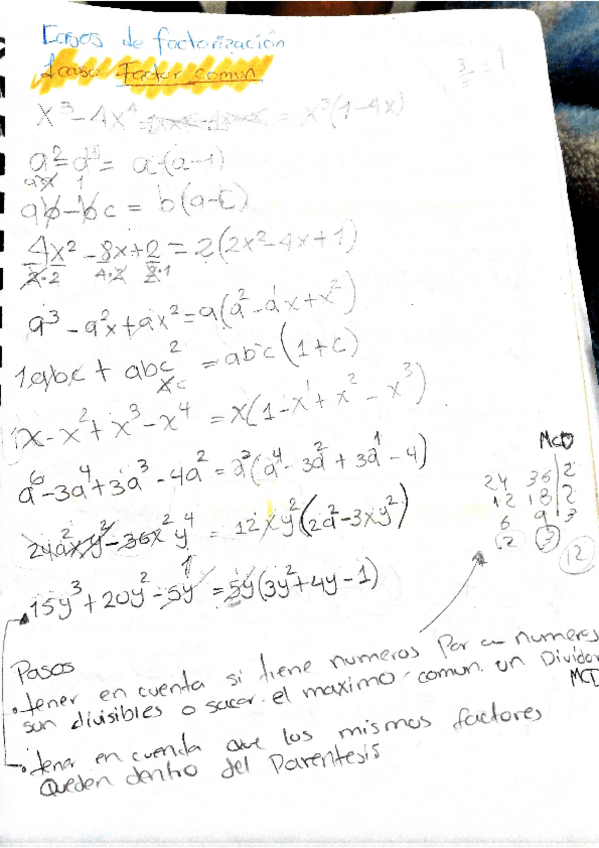 Casos de factorización
1 caso Factor comun
3/3 = 1
x³ - 4x⁴ = x³(1-4x)
a² - a = a(a-1)
ab - bc = b(a-c)
4x² - 8x + 2 = 2(2x² - 4x + 1)
2·2 4·2 2·1
a³ - a²x + ax² = a(a² - ax + x²)
1abc + abc² = abc(1+c)
x - x² + x³ - x⁴ = x(1 - x¹ + x² - x³)
a⁶ - 3a⁴ + 3a³ - 4a² = a²(a⁴ - 3a² + 3a¹ - 4)
24a²xy² - 36x²y⁴ = 12xy²(2a² - 3xy²)
15y³ + 20y² - 5y¹ = 5y(3y² + 4y - 1)
MCD
24 36 | 2
12 18 | 2
6 9 | 3
2 3
12
Pasos
• tener en cuenta si tiene numeros Por numeros
son divisibles o sacar el maximo comun un Divisor
MCD
• tener en cuenta que los mismos factores
queden dentro del Parentesis